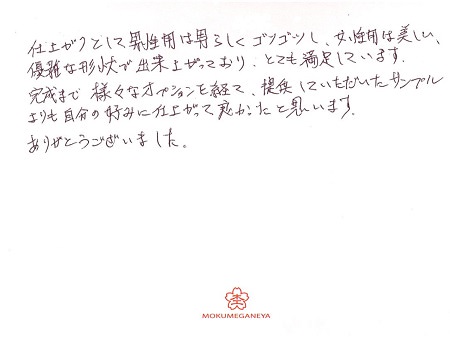 仕上がりとして男性用は男らしくゴツゴツし、女性用は美しい、
優雅な形状で出来上がっており、とても満足しています。
完成まで様々なオプションを経て、提供していただいたサンプル
よりも自分の好みに仕上がって良かったと思います。
ありがとうございました。
MOKUMEGANEYA